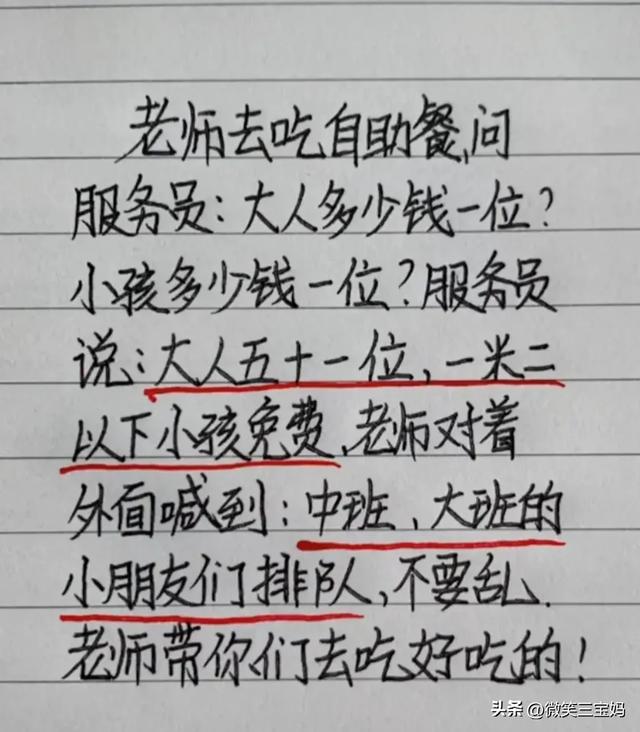 老师去吃自助餐,问
服务员:大人多少钱一位?
小孩多少钱一位?服务员
说:大人五十一位,一米二
以下小孩免费、老师对着
外面喊到:中班、大班的
小朋友们排队,不要乱.
老师带你们去吃好吃的!
头条 @微笑三宝妈